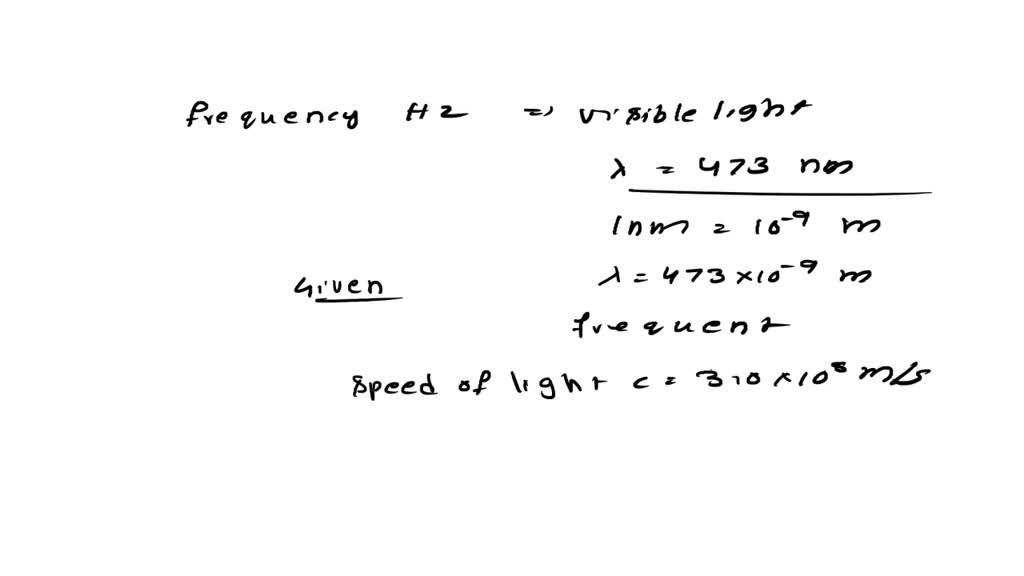 frequency Hz => visible light
λ = 473 nm
1nm = 10⁻⁹ m
λ = 473 × 10⁻⁹ m
Given
frequent
speed of light c = 3.0 × 10⁸ m/s